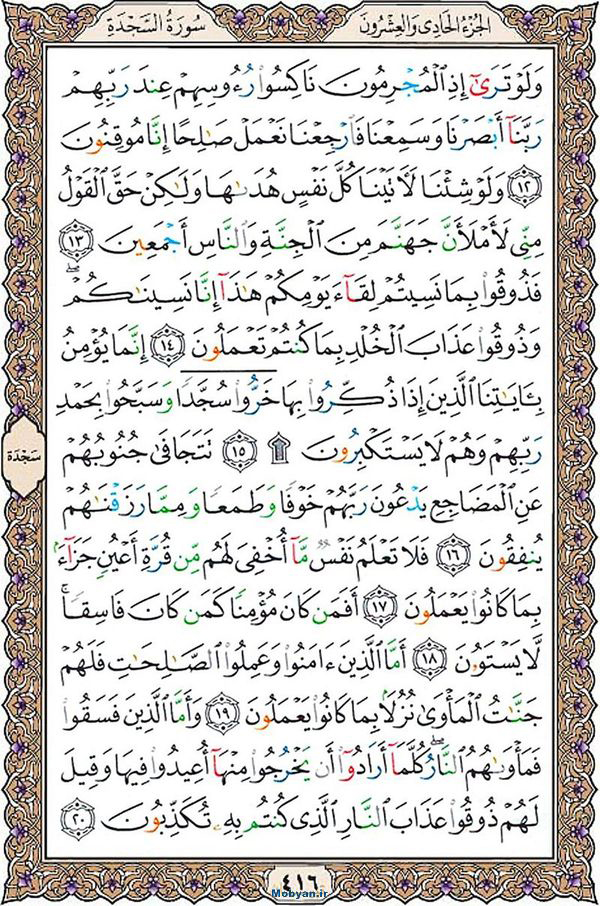 الجزء الحادي والعشرون
سورة السجدة
وَلَوْ تَرَىٰٓ إِذِ ٱلْمُجْرِمُونَ نَاكِسُوا۟ رُءُوسِهِمْ عِندَ رَبِّهِمْ
رَبَّنَآ أَبْصَرْنَا وَسَمِعْنَا فَٱرْجِعْنَا نَعْمَلْ صَـٰلِحًا إِنَّا مُوقِنُونَ
١٢ وَلَوْ شِئْنَا لَـَٔاتَيْنَا كُلَّ نَفْسٍ هُدَىٰهَا وَلَـٰكِنْ حَقَّ ٱلْقَوْلُ
مِنِّى لَأَمْلَأَنَّ جَهَنَّمَ مِنَ ٱلْجِنَّةِ وَٱلنَّاسِ أَجْمَعِينَ ١٣
فَذُوقُوا۟ بِمَا نَسِيتُمْ لِقَآءَ يَوْمِكُمْ هَـٰذَآ إِنَّا نَسِينَـٰكُمْ ۖ
وَذُوقُوا۟ عَذَابَ ٱلْخُلْدِ بِمَا كُنتُمْ تَعْمَلُونَ ١٤ إِنَّمَا يُؤْمِنُ
بِـَٔايَـٰتِنَا ٱلَّذِينَ إِذَا ذُكِّرُوا۟ بِهَا خَرُّوا۟ سُجَّدًا وَسَبَّحُوا۟ بِحَمْدِ
رَبِّهِمْ وَهُمْ لَا يَسْتَكْبِرُونَ ۩ ١٥ تَتَجَافَىٰ جُنُوبُهُمْ
سجدة
عَنِ ٱلْمَضَاجِعِ يَدْعُونَ رَبَّهُمْ خَوْفًا وَطَمَعًا وَمِمَّا رَزَقْنَـٰهُمْ
يُنفِقُونَ ١٦ فَلَا تَعْلَمُ نَفْسٌ مَّآ أُخْفِىَ لَهُم مِّن قُرَّةِ أَعْيُنٍ جَزَآءًۢ
بِمَا كَانُوا۟ يَعْمَلُونَ ١٧ أَفَمَن كَانَ مُؤْمِنًا كَمَن كَانَ فَاسِقًا ۚ
لَّا يَسْتَوُۥنَ ١٨ أَمَّا ٱلَّذِينَ ءَامَنُوا۟ وَعَمِلُوا۟ ٱلصَّـٰلِحَـٰتِ فَلَهُمْ
جَنَّـٰتُ ٱلْمَأْوَىٰ نُزُلًۢا بِمَا كَانُوا۟ يَعْمَلُونَ ١٩ وَأَمَّا ٱلَّذِينَ فَسَقُوا۟
فَمَأْوَىٰهُمُ ٱلنَّارُ ۖ كُلَّمَآ أَرَادُوٓا۟ أَن يَخْرُجُوا۟ مِنْهَآ أُعِيدُوا۟ فِيهَا وَقِيلَ
لَهُمْ ذُوقُوا۟ عَذَابَ ٱلنَّارِ ٱلَّذِى كُنتُم بِهِۦ تُكَذِّبُونَ ٢٠
٤١٦
Mobyan.ir